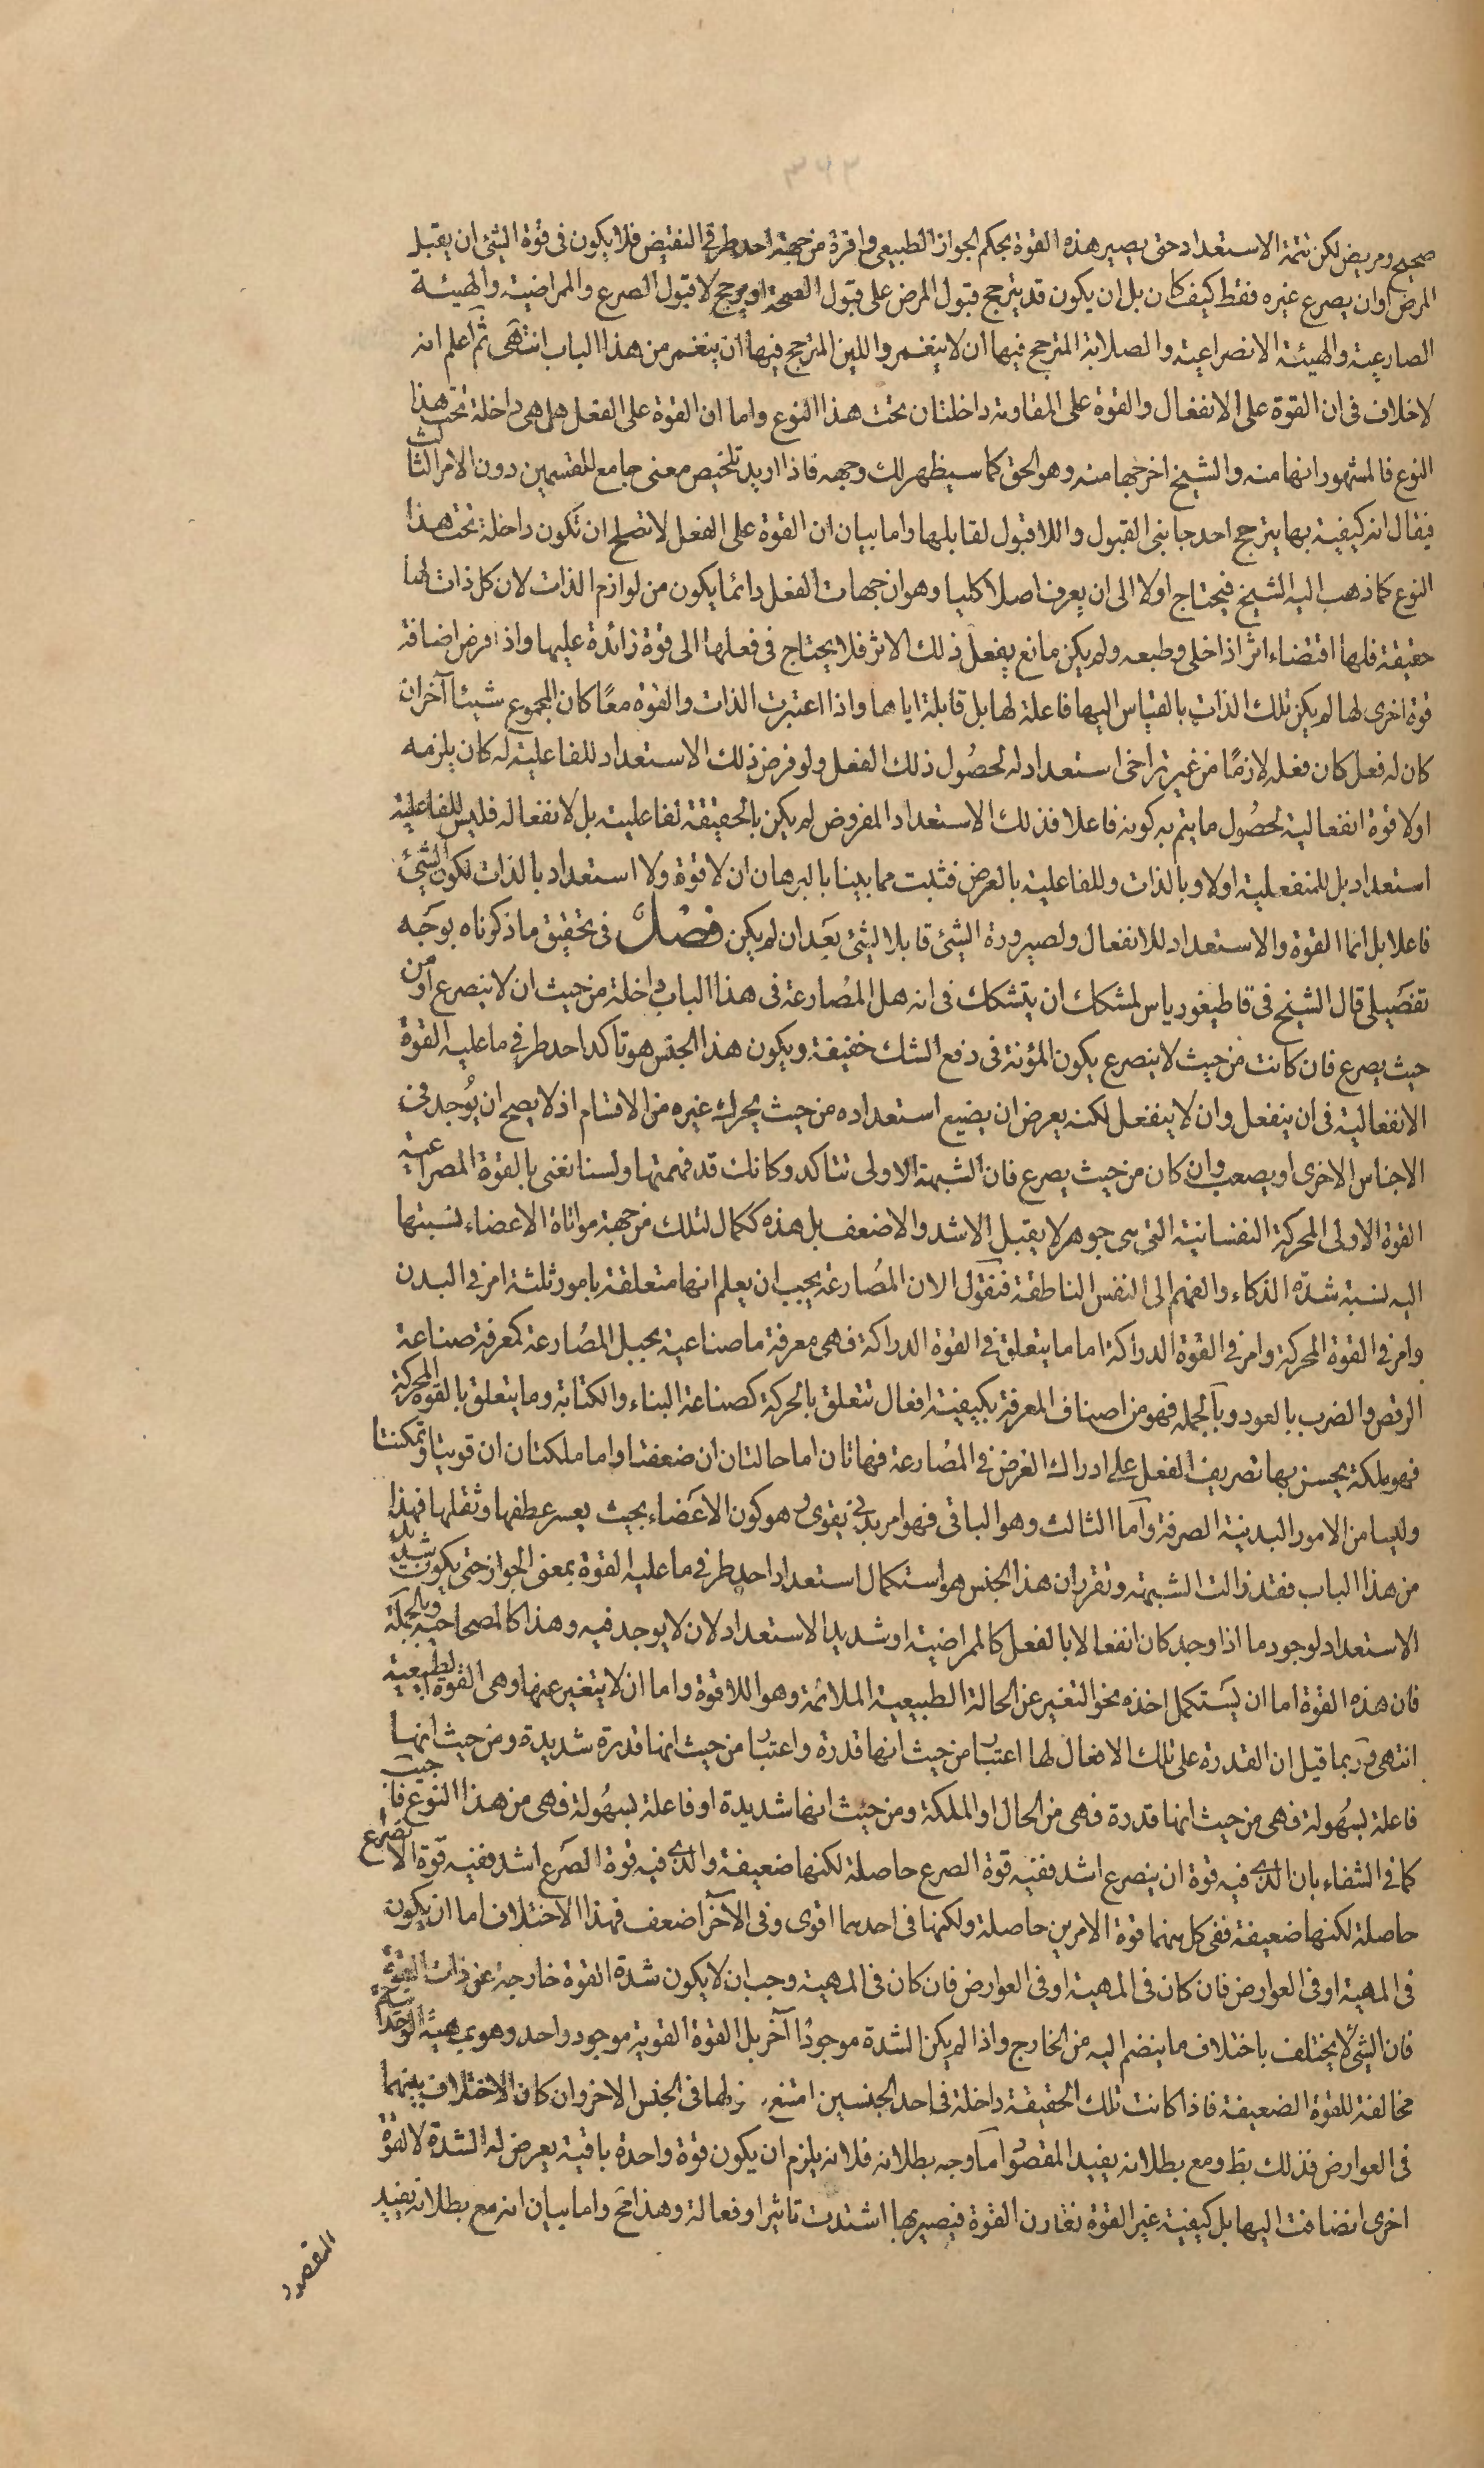 ٣٤٣
صحيح ومريض لكن تتمة الاستعداد حتى يصير هذه القوة بحكم الجواز الطبيعى وافرة من جهة احد طرفى النقيض فلا يكون فى قوة الشئ ان يقبل
المرض او ان يصرع غيره فقط كيف كان بل ان يكون قد يترجح قبول المرض على قبول الصحة او يرجح لا قبول الصرع والمراضية والهيئة
الصارعية والهيئة الانصراعية والصلابة المترجح فيها ان لا ينغمر واللين المترجح فيها ان ينغمر من هذا الباب انتهى ثم اعلم انه
لا خلاف فى ان القوة على الانفعال والقوة على المقاومة داخلتان تحت هذا النوع واما ان القوة على الفعل هل هى داخلة تحت هذا
النوع فالمشهور انها منه والشيخ اخرجها منه وهو الحق كما سيظهر لك وجهه فاذا اريد تلخيص معنى جامع للقسمين دون الامر الثالث
فيقال انه كيفية بها يترجح احد جانبى القبول واللاقبول لقابلها واما بيان ان القوة على الفعل لا تصلح ان تكون داخلة تحت هذا
النوع كما ذهب اليه الشيخ فيحتاج اولا الى ان يعرف اصلا كليا وهو ان جهات الفعل دائما يكون من لوازم الذات لان كل ذات لها
حقيقة فلها اقتضاء اثر اذا خلى وطبعه ولم يكن مانع يفعل ذلك الاثر فلا يحتاج فى فعلها الى قوة زائدة عليها واذا فرض اضافة
قوة اخرى لها لم يكن تلك الذات بالقياس اليها فاعلة لها بل قابلة اياها واذا اعتبرت الذات والقوة معًا كان المجموع شيئا آخر ان
كان له فعل كان فعله لازمًا من غير تراخى استعداد له لحصُول ذلك الفعل ولو فرض ذلك الاستعداد للفاعلية له كان يلزمه
اولا قوة انفعالية لحصُول ما يتم به كونه فاعلا فذلك الاستعداد المفروض لم يكن بالحقيقة لفاعلية بل لانفعاله فليس للفاعلية
استعداد بل للمنفعلية اولا وبالذات وللفاعلية بالعرض فثبت مما بينا بالبرهان ان لا قوة ولا استعداد بالذات لكون الشئ
فاعلا بل انما القوة والاستعداد للانفعال ولصيرورة الشئ قابلا لشئ بَعد ان لم يكن فصل فى تحقيق ما ذكرناه بوجَه
تفصَيلى قال الشيخ فى قاطيغورياس لمشكك ان يتشكك فى انه هل المصُارعة فى هذا الباب داخلة من حيث ان لا ينصرع او من
حيث يصرع فان كانت من حيث لا ينصرع يكون المؤنة فى دفع الشك خفيفة ويكون هذا الجنس هو تاكد احد طرفى ما عليه القوة
الانفعالية فى ان ينفعل وان لا ينفعل لكنه يعرض ان يضيع استعداده من حيث يحرك غيره من الاقسام اذ لا يصح ان يُوجد فى
الاجناس الاخرى او يصعب وان كان من حيث يصرع فان الشبهة الاولى تتاكد وكانك قد فهمتها ولسنا نعنى بالقوة المصراعية
القوة الاولى المحركة النفسانية التى هى جوهر لا يقبل الاشد والاضعف بل هذه ككمال لتلك من جهة مواتاة الاعضاء نسبتها
اليه نسبة شدّة الذكاء والفهم الى النفس الناطقة فنقول الان المصُارعة يجب ان يعلم انها متعلقة بامور ثلثة امر فى البدن
وامر فى القوة المحركة وامر فى القوة الدراكة اما ما يتعلق فى القوة الدراكة فهى معرفة ما صناعية بحيل المصُارعة كمعرفة صناعة
الرقص والضرب بالعود وبالجمله فهو من اصناف المعرفة بكيفية افعال تتعلق بالحركة كصناعة البناء والكتابة وما يتعلق بالقوة المحركة
فهو ملكة يحسن بها تصريف الفعل على ادراك الغرض فى المصُارعة فهاتان اما حالتان ان ضعفتا واما ملكتان ان قويتا وتمكنتا
وليسا من الامور البدنية الصرفة وآما الثالث وهو الباقى فهو امر بدنى يقوى وهو كون الاعَضاء بحيث يعسر عطفها وثقلها فهذا
من هذا الباب فقد زالت الشبهة وتقرر ان هذا الجنس هو استكمال استعداد احد طرفى ما عليه القوة بمعنى الجواز حتى يكون شديد
الاستعداد لوجود ما اذا وجد كان انفعالا بالفعل كالمراضية او شديد الاستعداد لان لا يوجد فيه وهذا كالمصحاحية وبالجملة
فان هذه القوة اما ان يسَتكمل اخذه نحو التغير عن الحالة الطبيعية الملائمة وهو اللاقوة واما ان لا يتغير عنها وهى القوة الطبيعية
انتهى وربما قيل ان القدرة على تلك الافعال لها اعتبار من حيث انها قدرة واعتبار من حيث انها قدرة شديدة ومن حيث انها
فاعلة بسُهولة فهى من حيث انها قدرة فهى من الحال او الملكة ومن حيث انها شديدة او فاعلة بسهُولة فهى من هذا النوع فاجيب
كما فى الشفاء بان الذى فيه قوة ان ينصرع اشد ففيه قوة الصرع حاصلة لكنها ضعيفة والذى فيه قوة الصَرع اشد ففيه قوة الانصراع
حاصلة لكنها ضعيفة ففى كل منهما قوة الامرين حاصلة ولكنها فى احدهما اقوى وفى الآخر اضعف فهذا الاختلاف اما ان يكون
فى المهية او فى العوارض فان كان فى المهية وجب ان لا يكون شدة القوة خارجة عن ذات القوة
فان الشئ لا يختلف باختلاف ما ينضم اليه من الخارج واذا لم يكن الشدة موجودًا آخر بل القوة القوية موجود واحد وهو بمهيته الواحدة
مخالفة للقوة الضعيفة فاذا كانت تلك الحقيقة داخلة فى احد الجنسين امتنع دخولها فى الجنس الاخر وان كان الاختلاف بينهما
فى العوارض فذلك بط ومع بطلانه يفيد المقصُود اما وجه بطلانه فلانه يلزم ان يكون قوة واحدة باقية يعرض له الشدة لا لقوة
اخرى انضافت اليها بل كيفية غير القوة تقارن القوة فيصير بها اشتدت تاثيرا وفعالة وهذا مح واما بيان انه مع بطلانه يفيد
المقصود